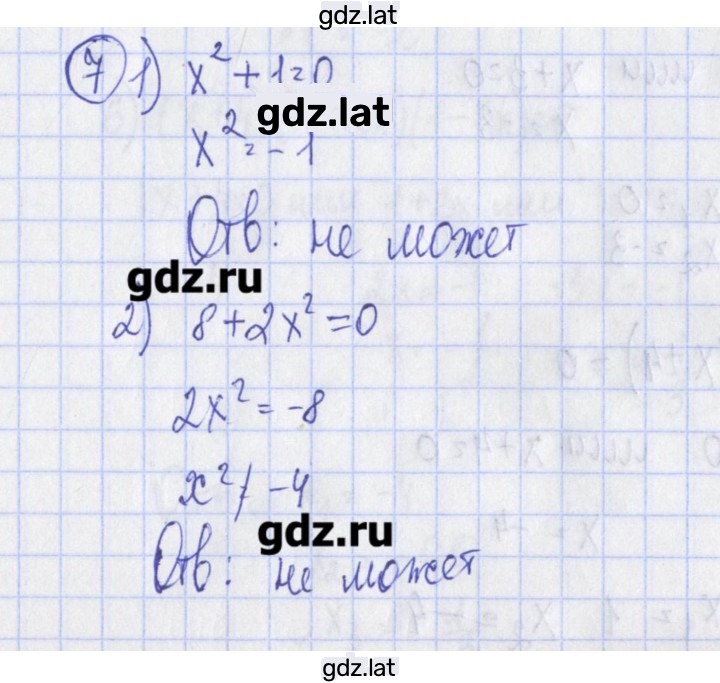 gdz.lat
7 1) x² + 1 = 0
gdz.lat
x² = - 1
Отв: не может
gdz.ru
2) 8 + 2x² = 0
2x² = -8
x² ≠ -4
gdz.ru
Отв: не может
gdz.lat